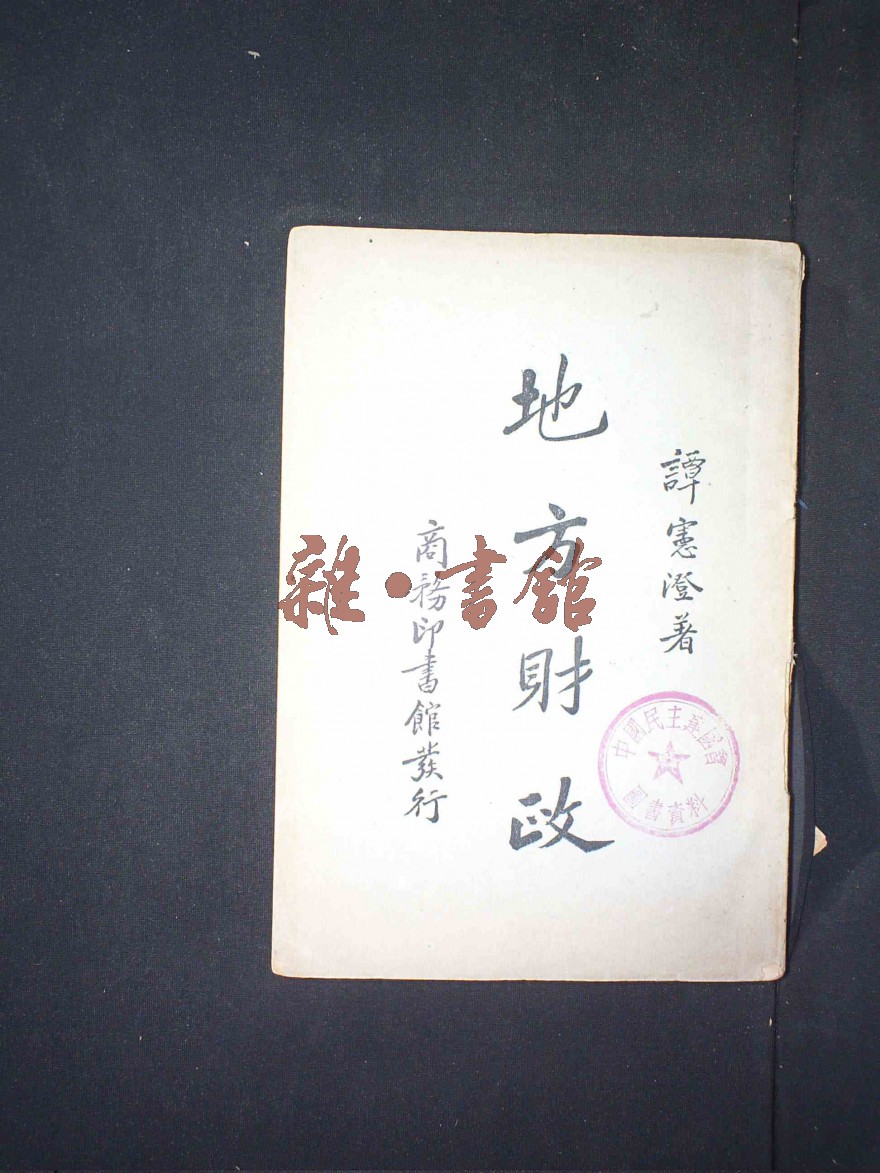 譚憲澄著
地方財政
商務印書館發行
雜·書館
中國民主革命同盟會
圖書資料